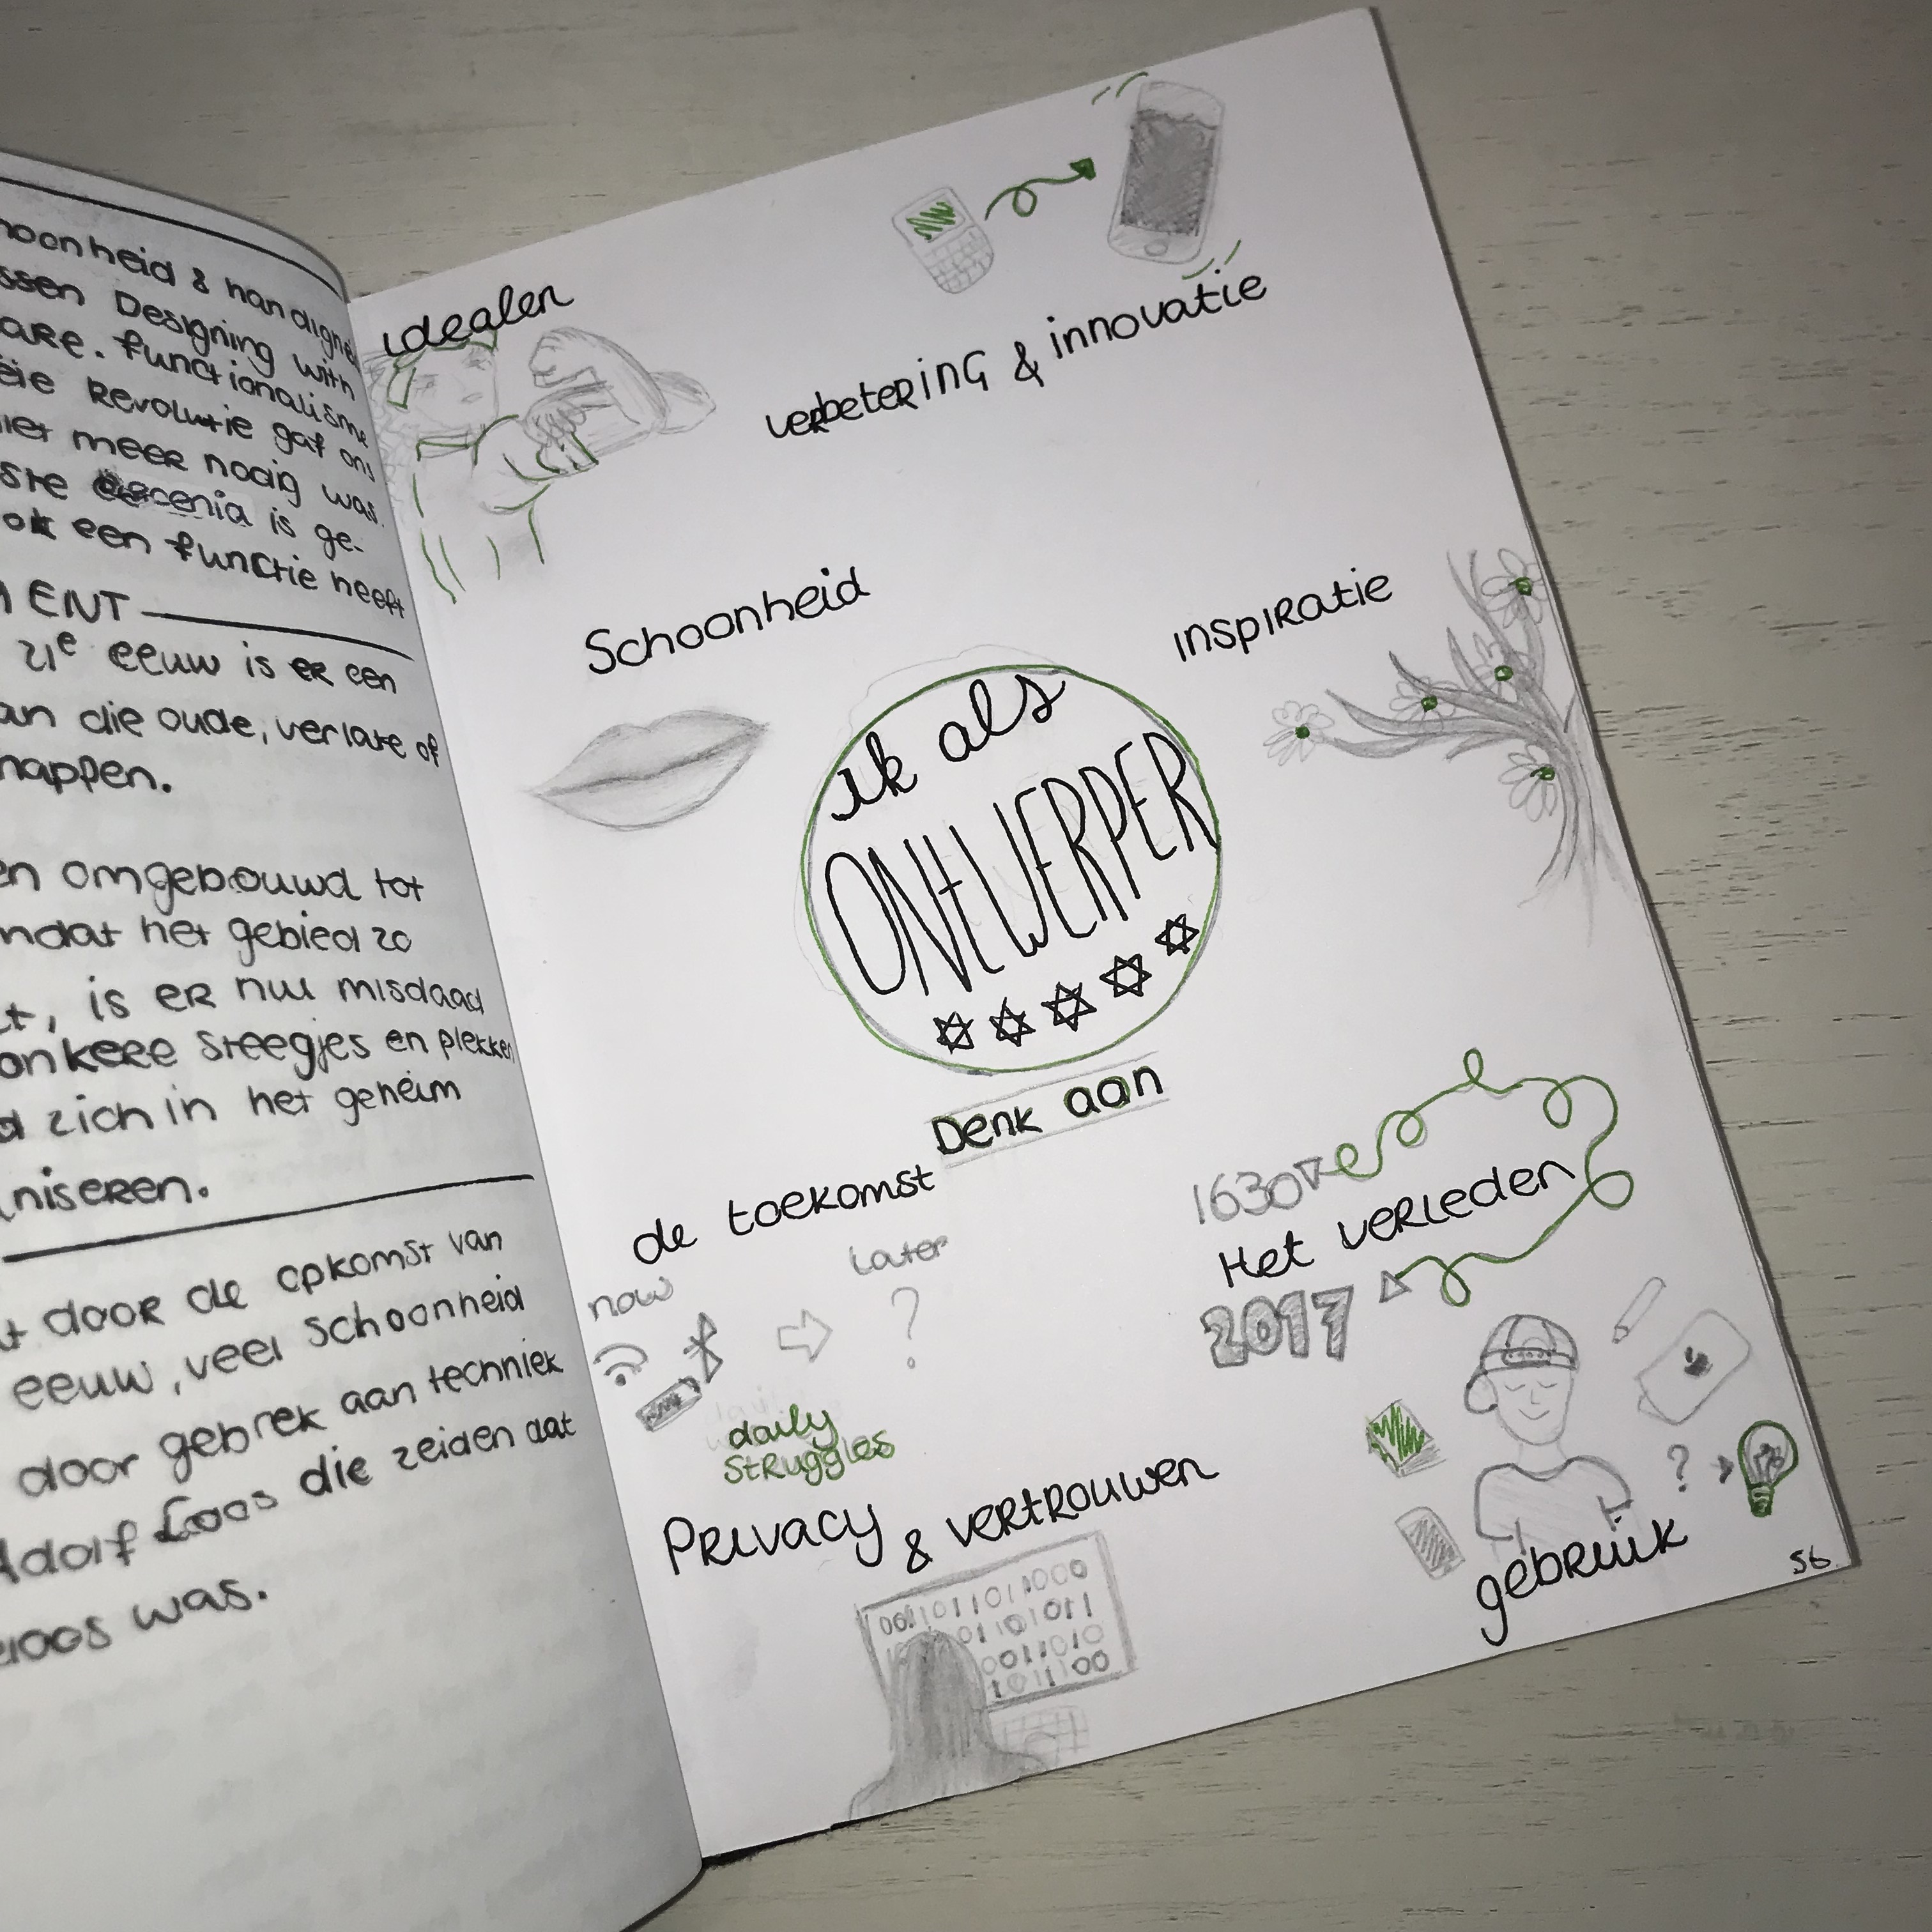 & handigheid
Designing with
functionalisme
Revolutie gaf ons
meer nodig was.
is ge-
een functie heeft
MENT
21e eeuw is er een
die oude, verlate of
omgebouwd tot
het gebied zo
, is er nu misdaad
steegjes en plekken
zich in het geheim
niseren.
door de opkomst van
eeuw, veel schoonheid
door gebrek aan techniek
Adolf Loos die zeiden dat
was.
idealen
verbetering & innovatie
Schoonheid
inspiratie
ik als
ONTWERPER
Denk aan
de toekomst
now
later
?
daily
struggles
1630
Het verleden
2017
Privacy & vertrouwen
?
gebruik
56